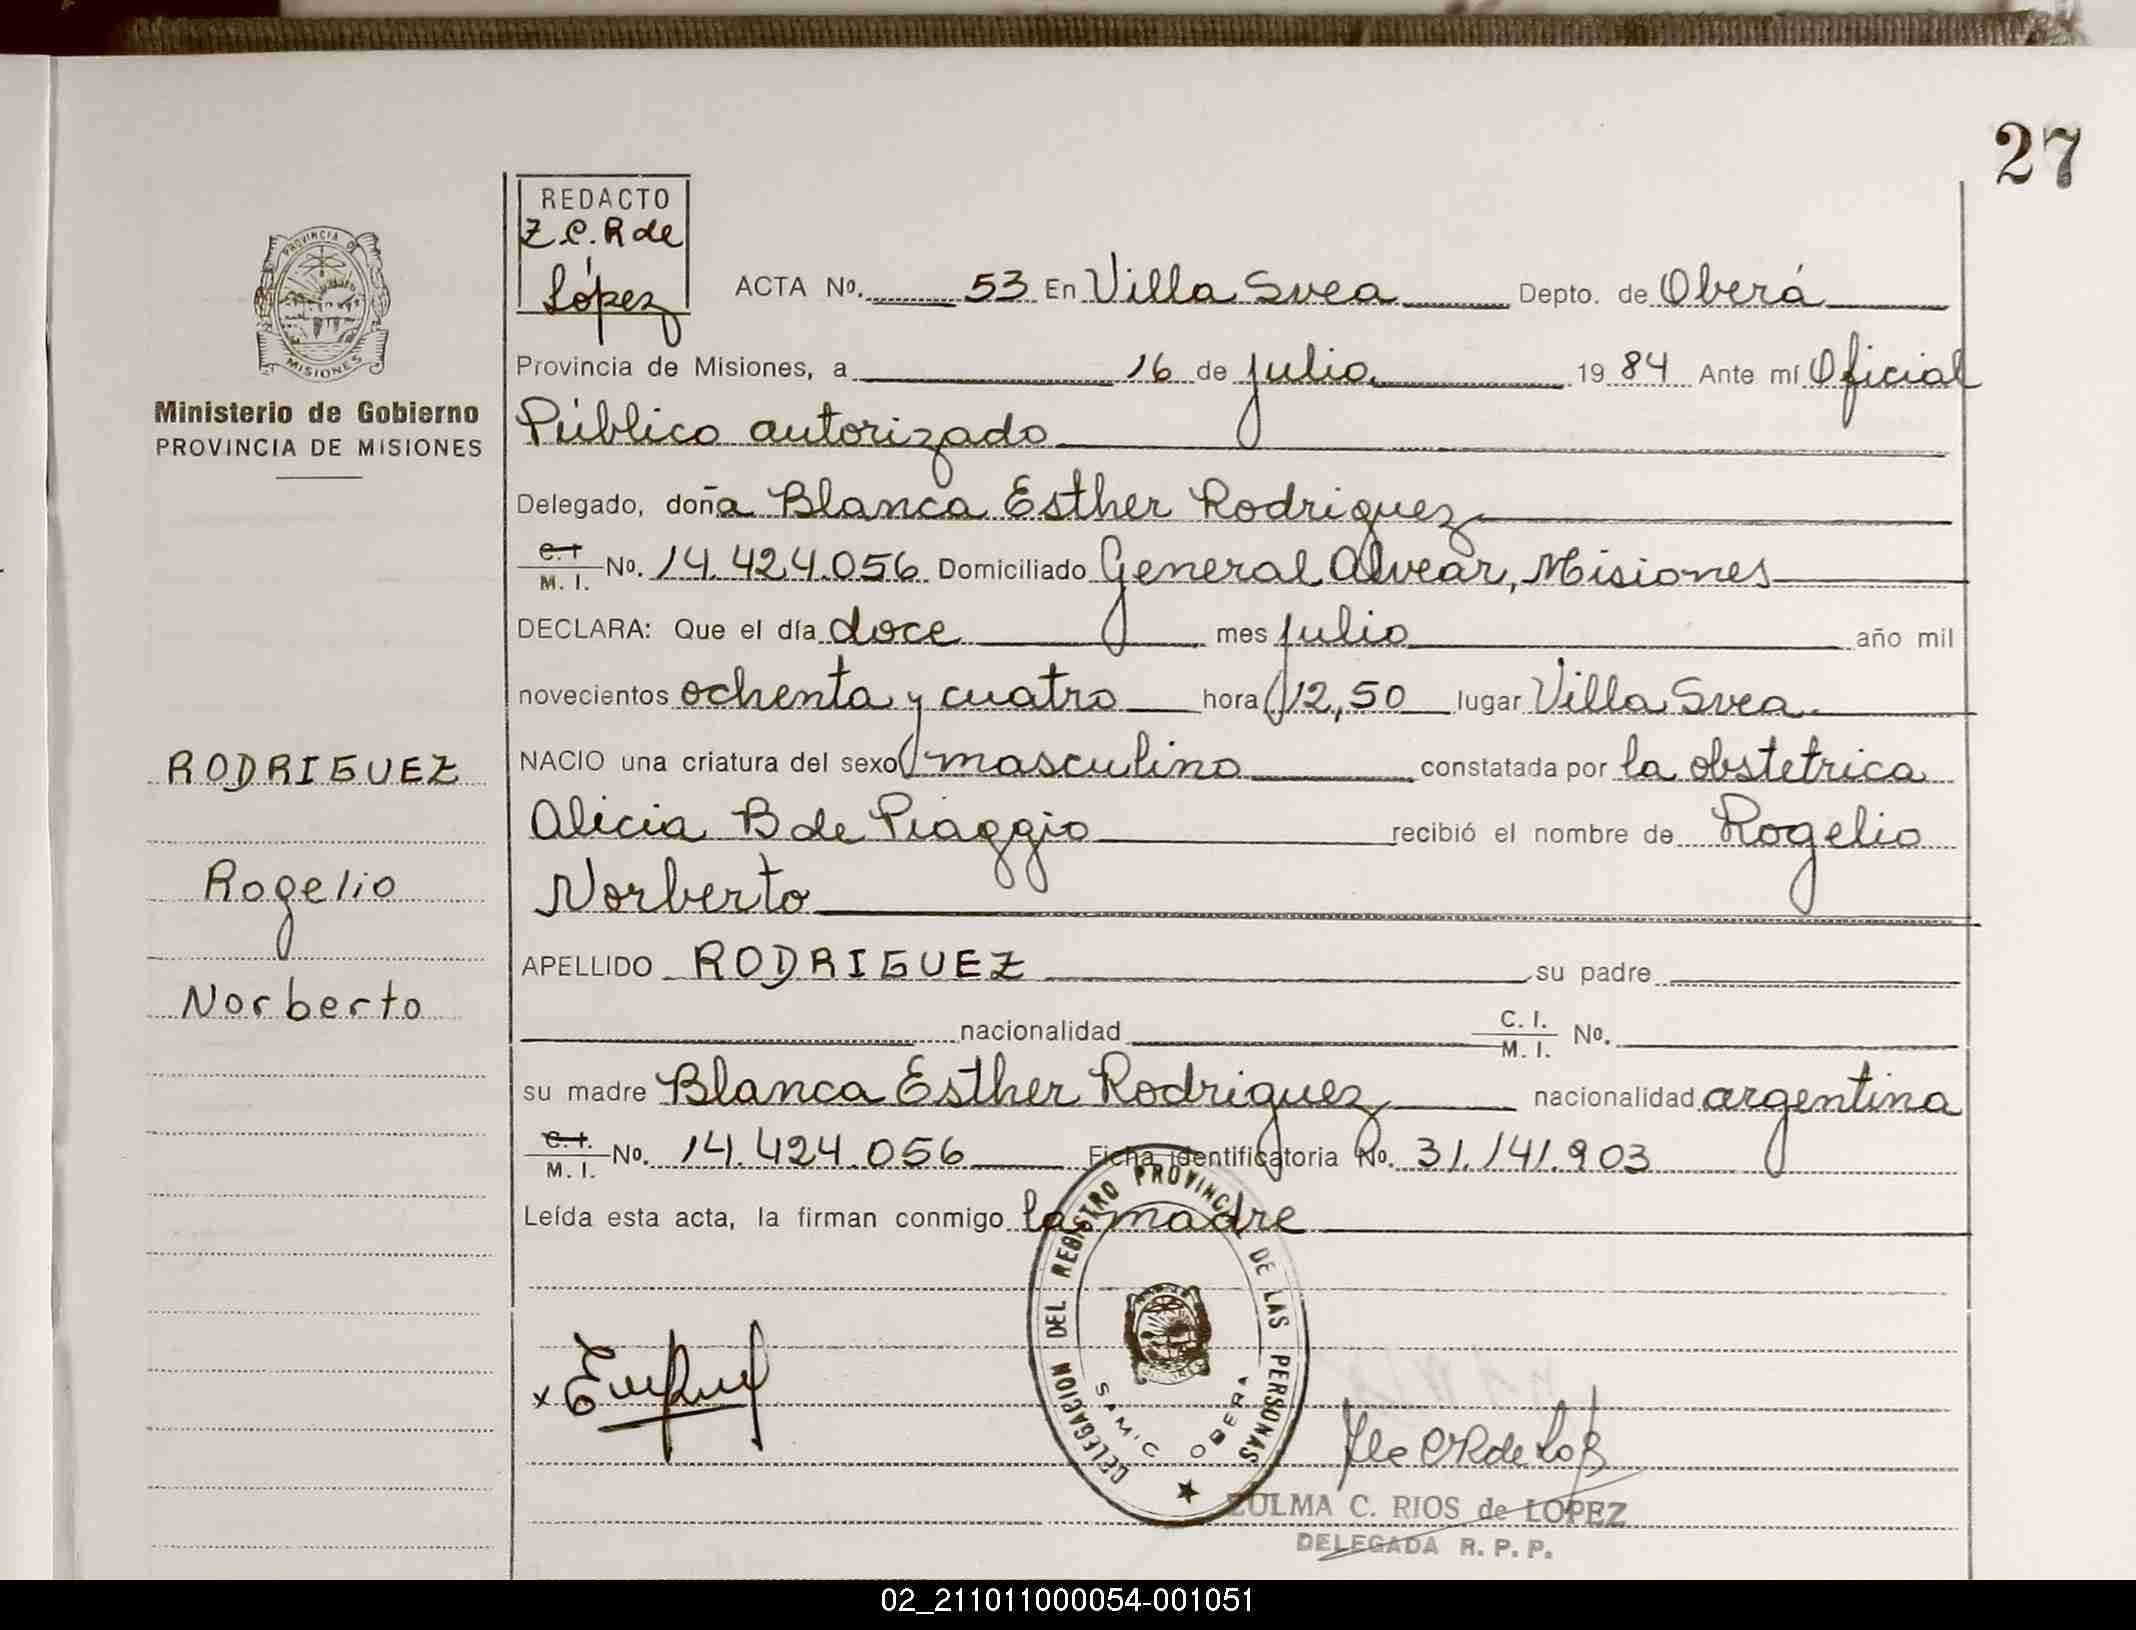 27
REDACTO
Z.C.R de
López
PROVINCIA DE
MISIONES
Ministerio de Gobierno
PROVINCIA DE MISIONES
ACTA No. 53 En Villa Svea Depto. de Oberá
Provincia de Misiones, a 16 de julio 1984 Ante mí Oficial
Público autorizado
Delegado, doña Blanca Esther Rodriguez
C.I. M. I. No. 14.424.056 Domiciliado General Alvear, Misiones
DECLARA: Que el día doce mes julio año mil
novecientos ochenta y cuatro hora 12,50 lugar Villa Svea
NACIO una criatura del sexo masculino constatada por la obstetrica
Alicia B de Piaggio recibió el nombre de Rogelio
Norberto
APELLIDO RODRIGUEZ su padre
nacionalidad C. I. M. I. No.
su madre Blanca Esther Rodriguez nacionalidad argentina
C.I. M. I. No. 14.424.056 Ficha identificatoria No. 31.141.903
Leída esta acta, la firman conmigo la madre
RODRIGUEZ
Rogelio
Norberto
DELEGACION DEL REGISTRO PROVINCIAL DE LAS PERSONAS
OBERA
ZULMA C. RIOS de LOPEZ
DELEGADA R. P. P.
02_211011000054-001051